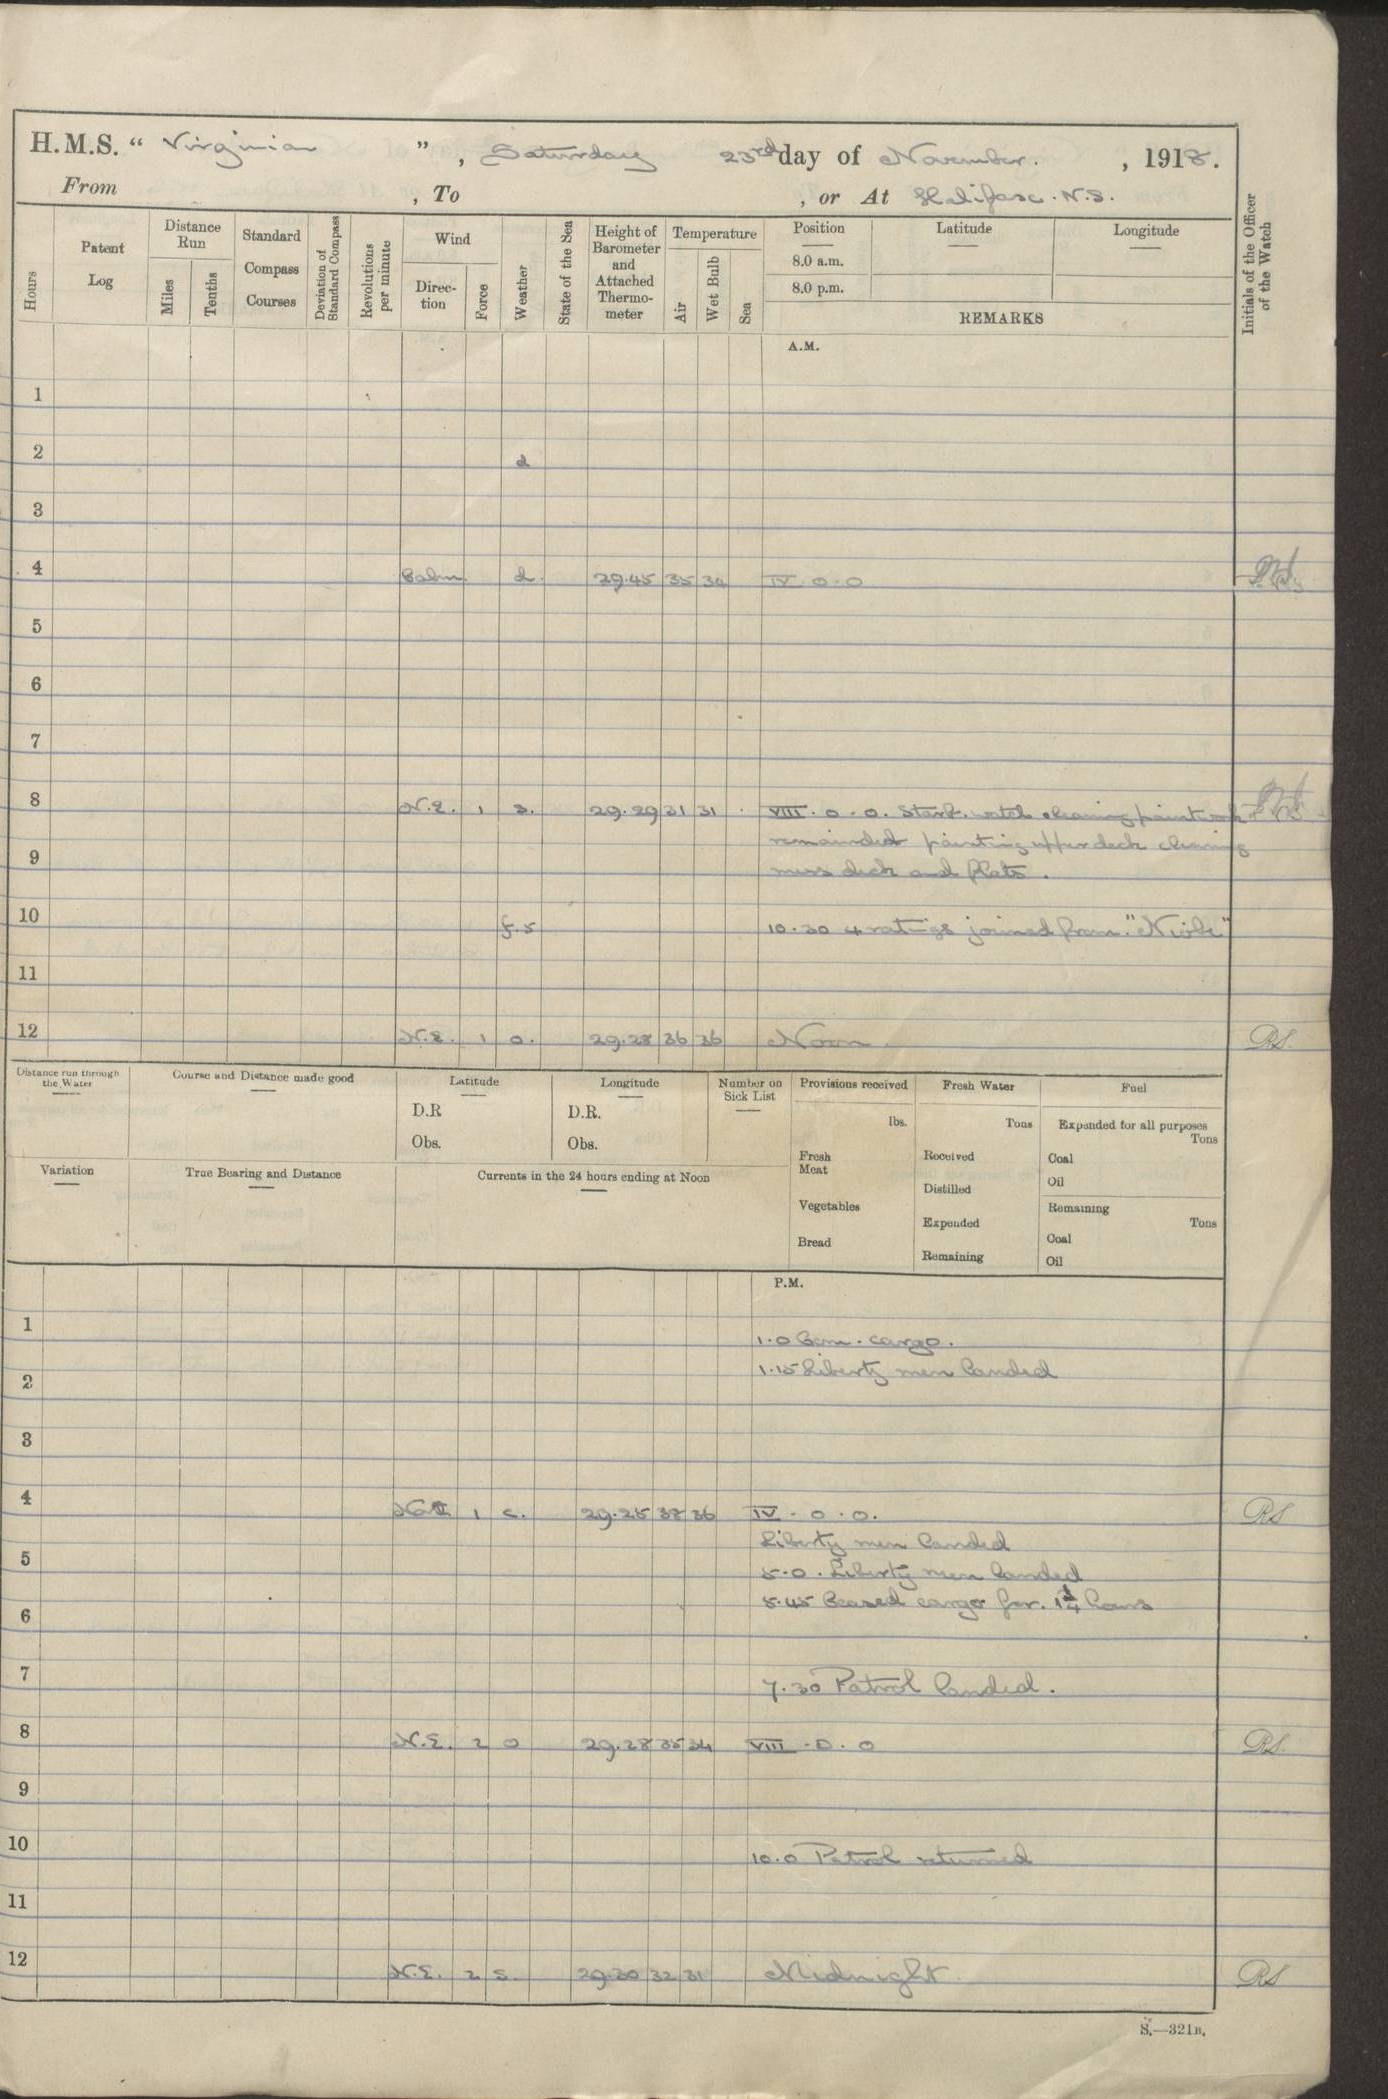 H.M.S. “ Virginian ” , Saturday 23rd day of November. , 1918.
From , To , or At Halifax. N.S.
Hours
Patent Log
Distance Run
Miles
Tenths
Standard Compass Courses
Deviation of Standard Compass
Revolutions per minute
Wind
Direction
Force
Weather
State of the Sea
Height of Barometer and Attached Thermometer
Temperature
Air
Wet Bulb
Sea
Position
8.0 a.m.
8.0 p.m.
Latitude
Longitude
REMARKS
Initials of the Officer of the Watch
A.M.
1
2 d
3
4 Calm d. 29.45 35 34 IV. 0. 0
5
6
7
8 N.E. 1 s. 29.29 31 31 VIII. 0. 0. Starb. watch cleaning paintwork
remainder painting upper deck cleaning
9 mess deck and flats.
10 f.s 10.30 4 ratings joined from "Niobe"
11
12 N.E. 1 o. 29.28 36 36 Noon RS.
Distance run through the Water
Course and Distance made good
Latitude
D.R
Obs.
Longitude
D.R.
Obs.
Number on Sick List
Provisions received
lbs.
Fresh Meat
Vegetables
Bread
Fresh Water
Tons
Received
Distilled
Expended
Remaining
Fuel
Expended for all purposes
Tons
Coal
Oil
Remaining
Tons
Coal
Oil
Variation
True Bearing and Distance
Currents in the 24 hours ending at Noon
P.M.
1 1.0 Com. cargo.
2 1.15 Liberty men landed
3
4 1 c. 29.25 38 36 IV. 0. 0. RS
Liberty men landed
5 5.0. Liberty men landed
6 5.45 Ceased cargo for hours
7 7.30 Patrol landed.
8 N.E. 2 o 29.28 35 34 VIII. 0. 0 RS.
9
10 10.0 Patrol returned
11
12 N.E. 2 s. 29.30 32 31 Midnight. RS
S.—321B.